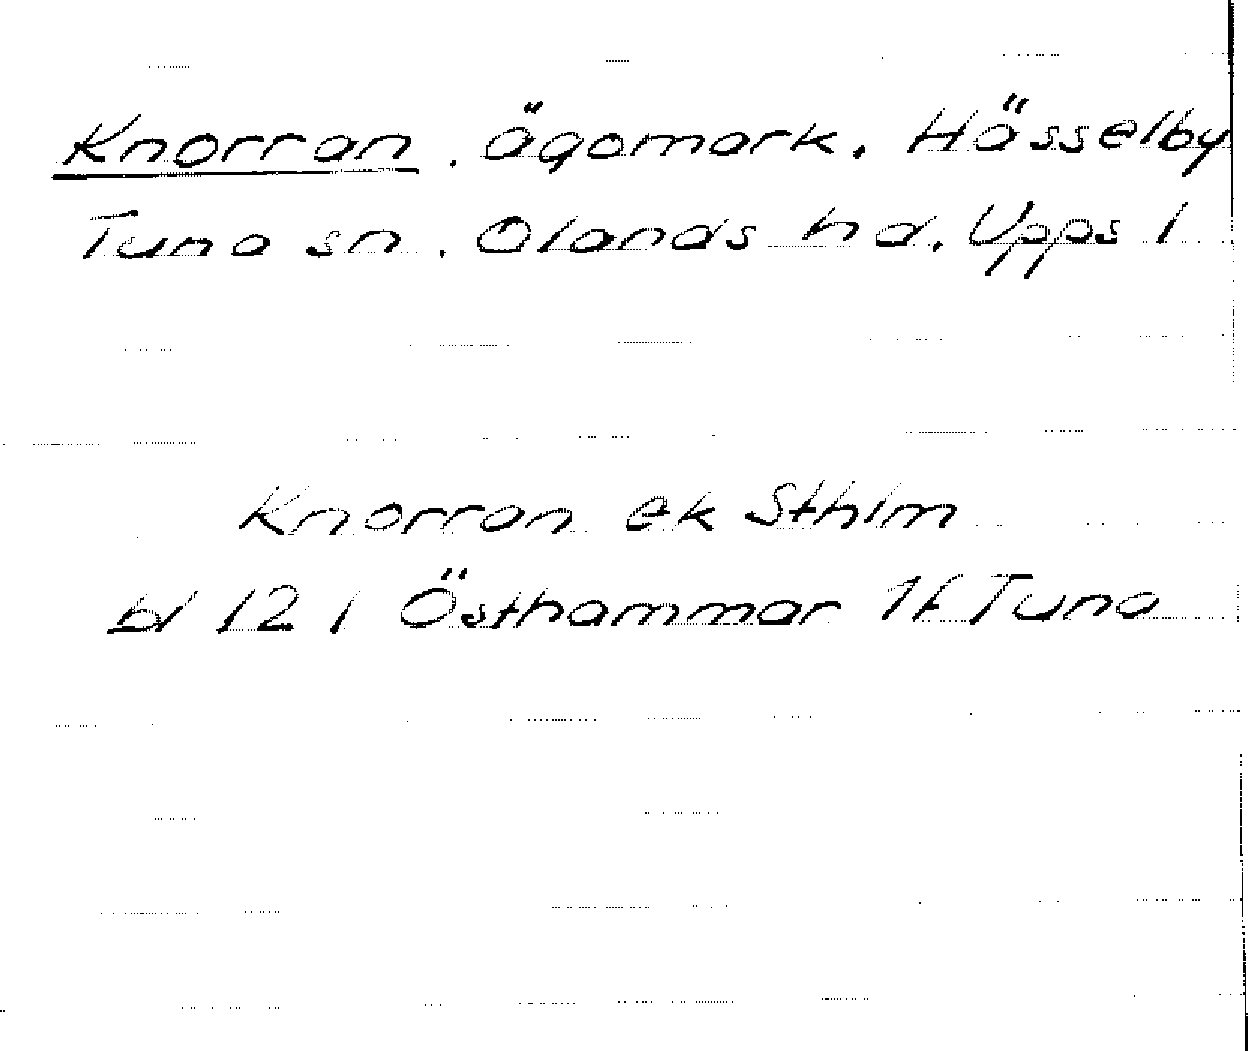 Knorran. ägomark. Hässelby
Tuna sn. Olands hd. Upps l
Knorran ek Sthlm
bl 121 Östhammar 1f Tuna